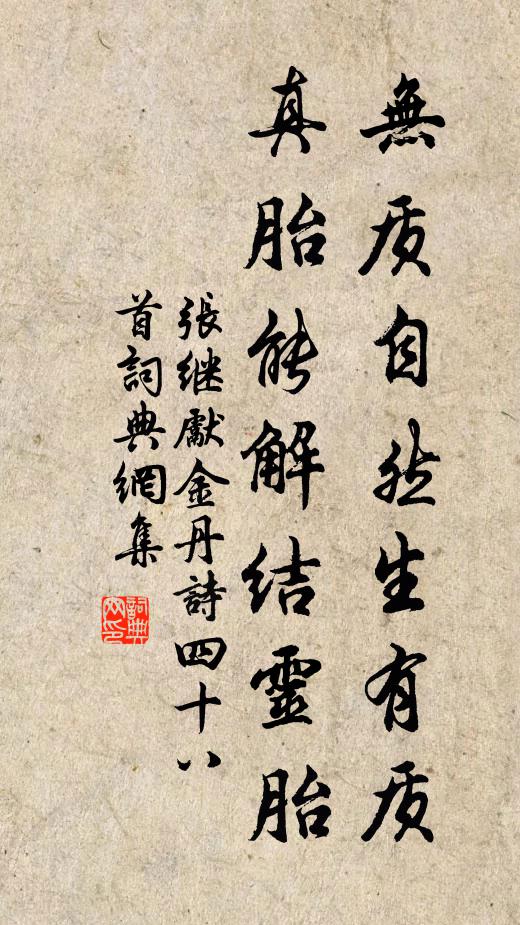 無质自然生有质
真胎能解结靈胎
張继獻金丹詩四十八
首詞典網集
詞典
网印